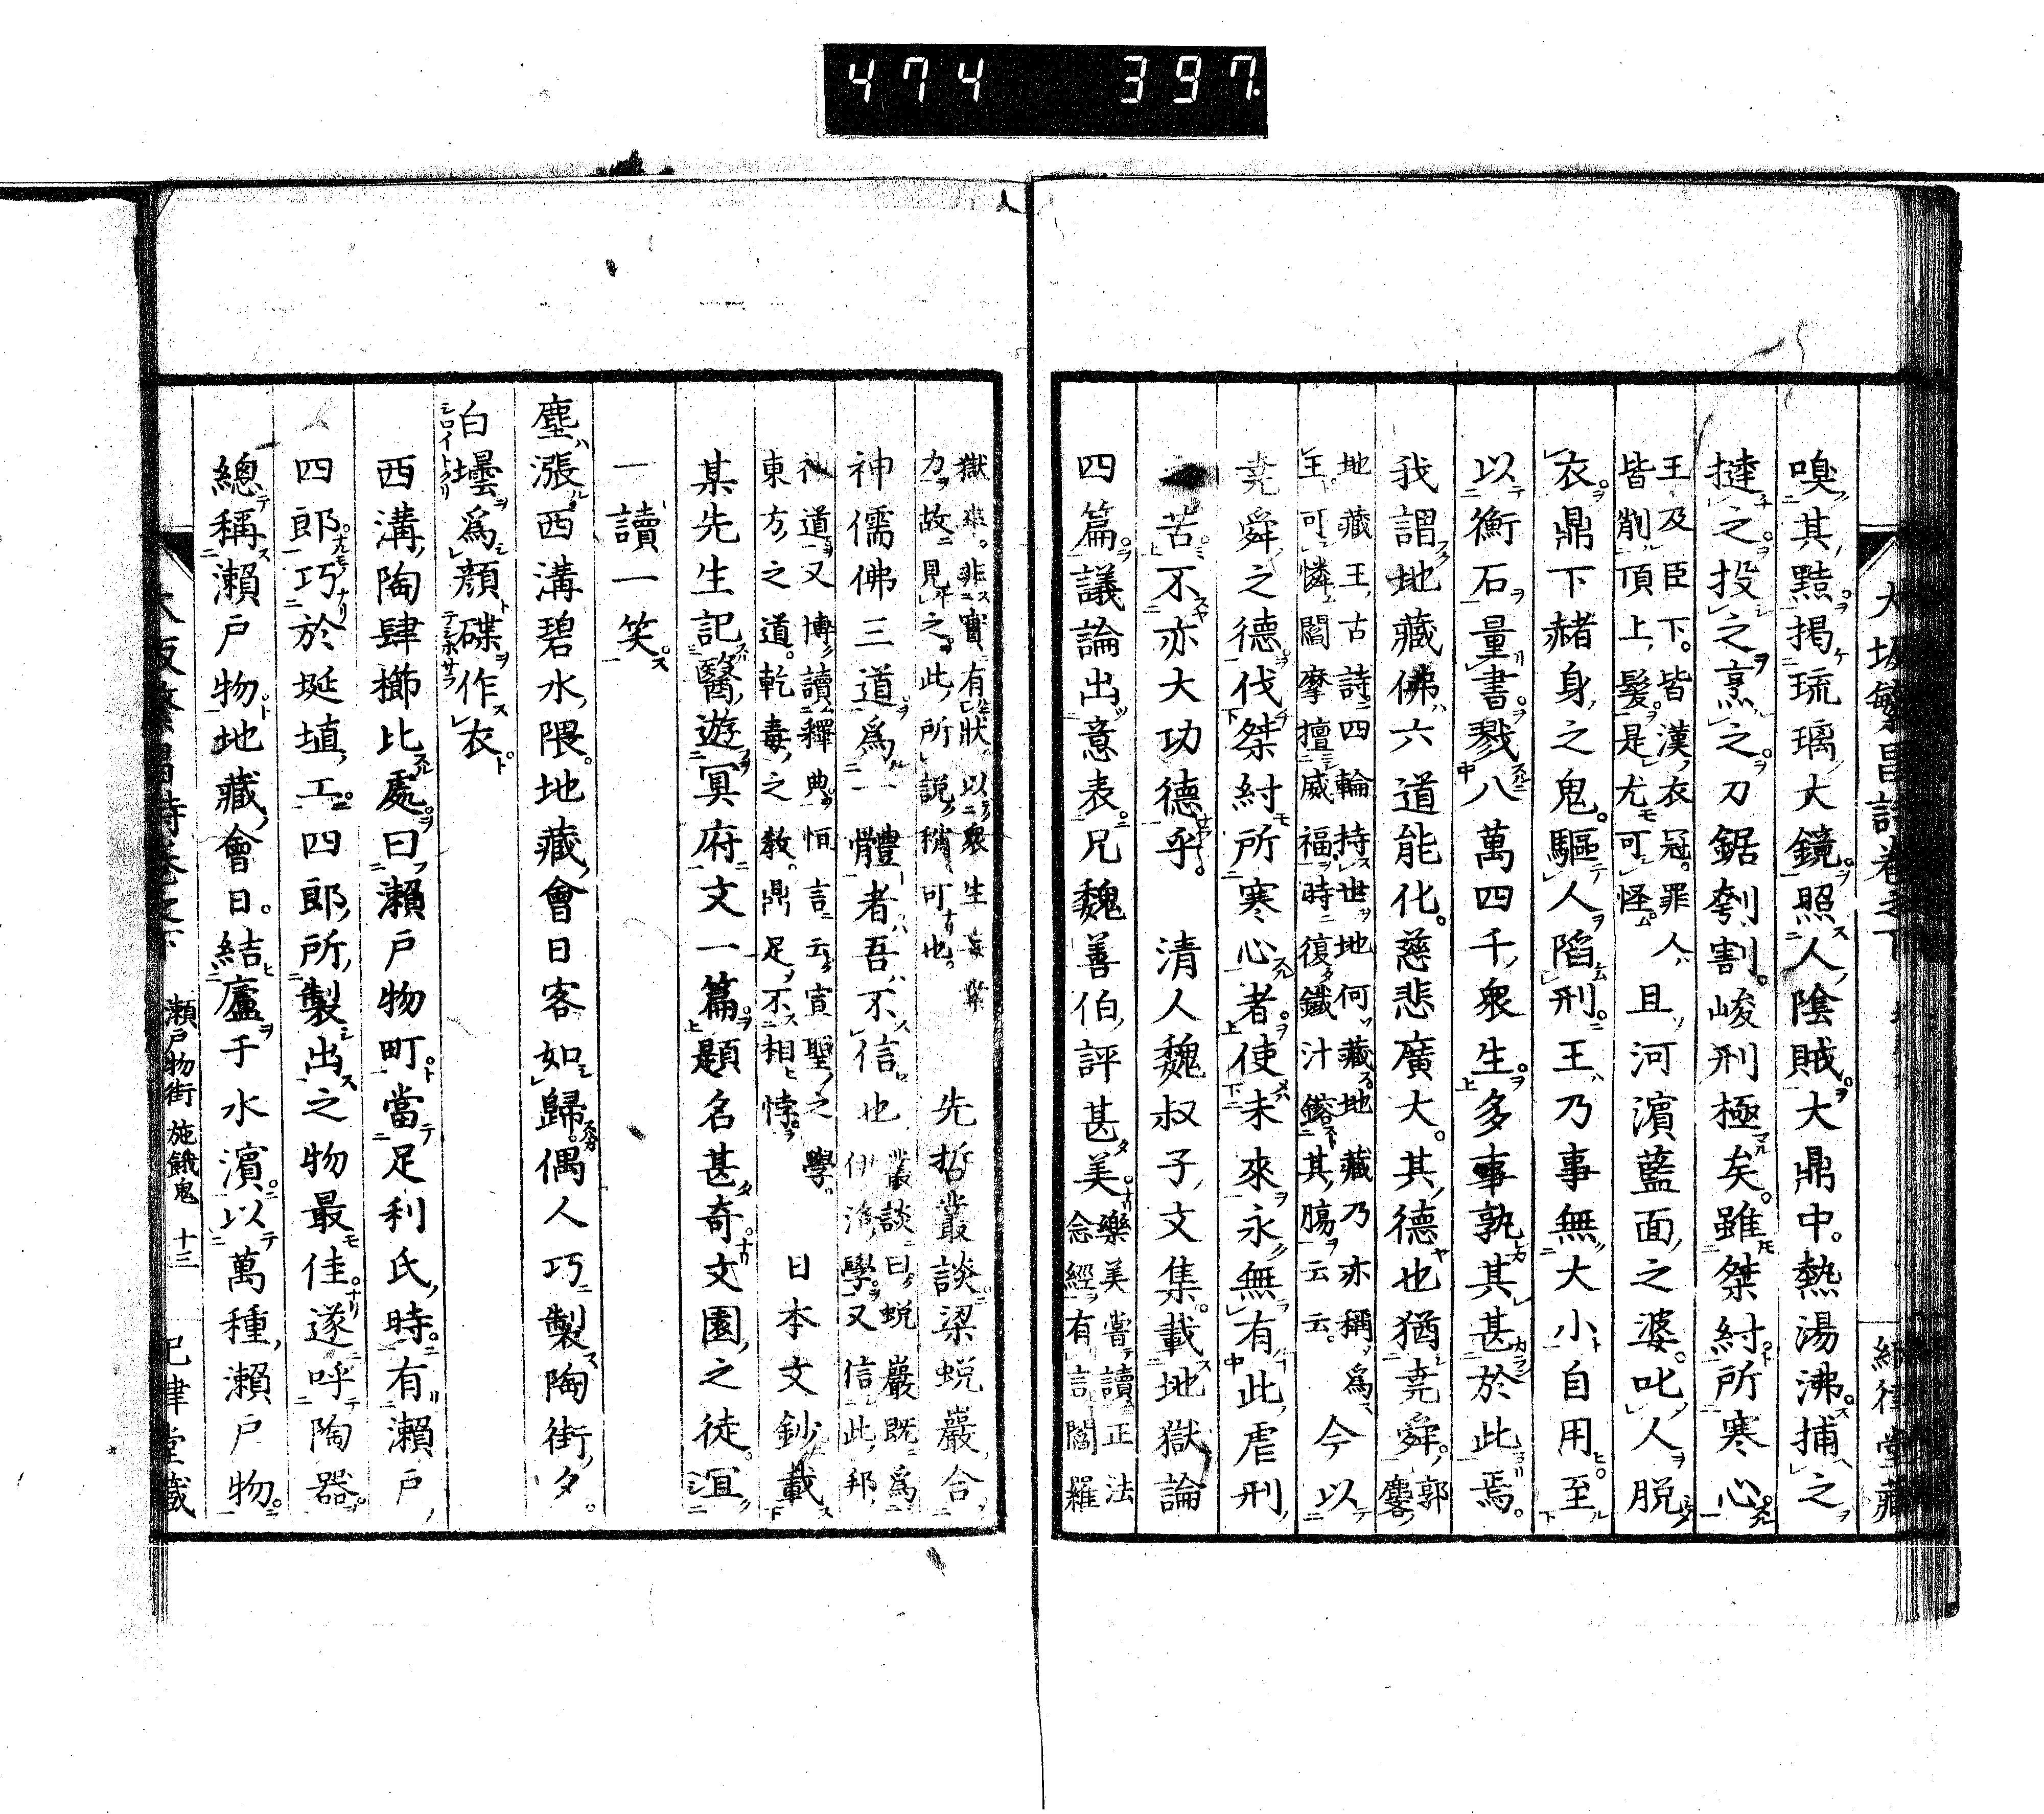 474 397
大坂繁昌詩卷之下
嗅其黠揭琉璃大鏡照人陰賊大鼎中熱湯沸捕之
撻之投之烹之刀鋸刳割峻刑極矣雖桀紂所寒心
王及臣下皆漢衣冠罪人
皆削頂上髮是尤可怪
且河濱藍面之婆叱人脫
衣鼎下赭身之鬼驅人陷刑王乃事無大小自用至
以衡石量書戮八萬四千衆生多事孰其甚於此焉
我謂地藏佛六道能化慈悲廣大其德也猶堯舜
郭麐
地藏王古詩四輪持世地何藏地藏乃亦稱爲
王可憐閻摩擅威福時復鐵汁鎔其腸云云
今以
堯舜之德伐桀紂所寒心者使未來永無有此虐刑
苦不亦大功德乎 清人魏叔子文集載地獄論
四篇議論出意表兄魏善伯評甚美
藥美嘗讀正法
念經有言閻羅
獄卒非實有狀以衆生
力故見之此所說稍可也
先哲叢談梁蛻巖合
神儒佛三道爲一體者吾不信也
叢談曰蛻巖既爲
伊洛學又信此邦
神道又博讀釋典恒言云宣聖之學
東方之道乾毒之教鼎足不相悖
日本文鈔載
某先生記醫遊冥府文一篇題名甚奇文園之徒宜
一讀一笑
塵漲西溝碧水隈地藏會日客如歸偶人巧製陶街夕
白壜爲顏碟作衣
シロイトクリ テシホサラ
西溝陶肆櫛比處曰瀨戶物町當足利氏時有瀨戶
四郎巧於埏埴工四郎所製出之物最佳遂呼陶器
總稱瀨戶物地藏會日結廬于水濱以萬種瀨戶物
瀨戶物街 施餓鬼 十三